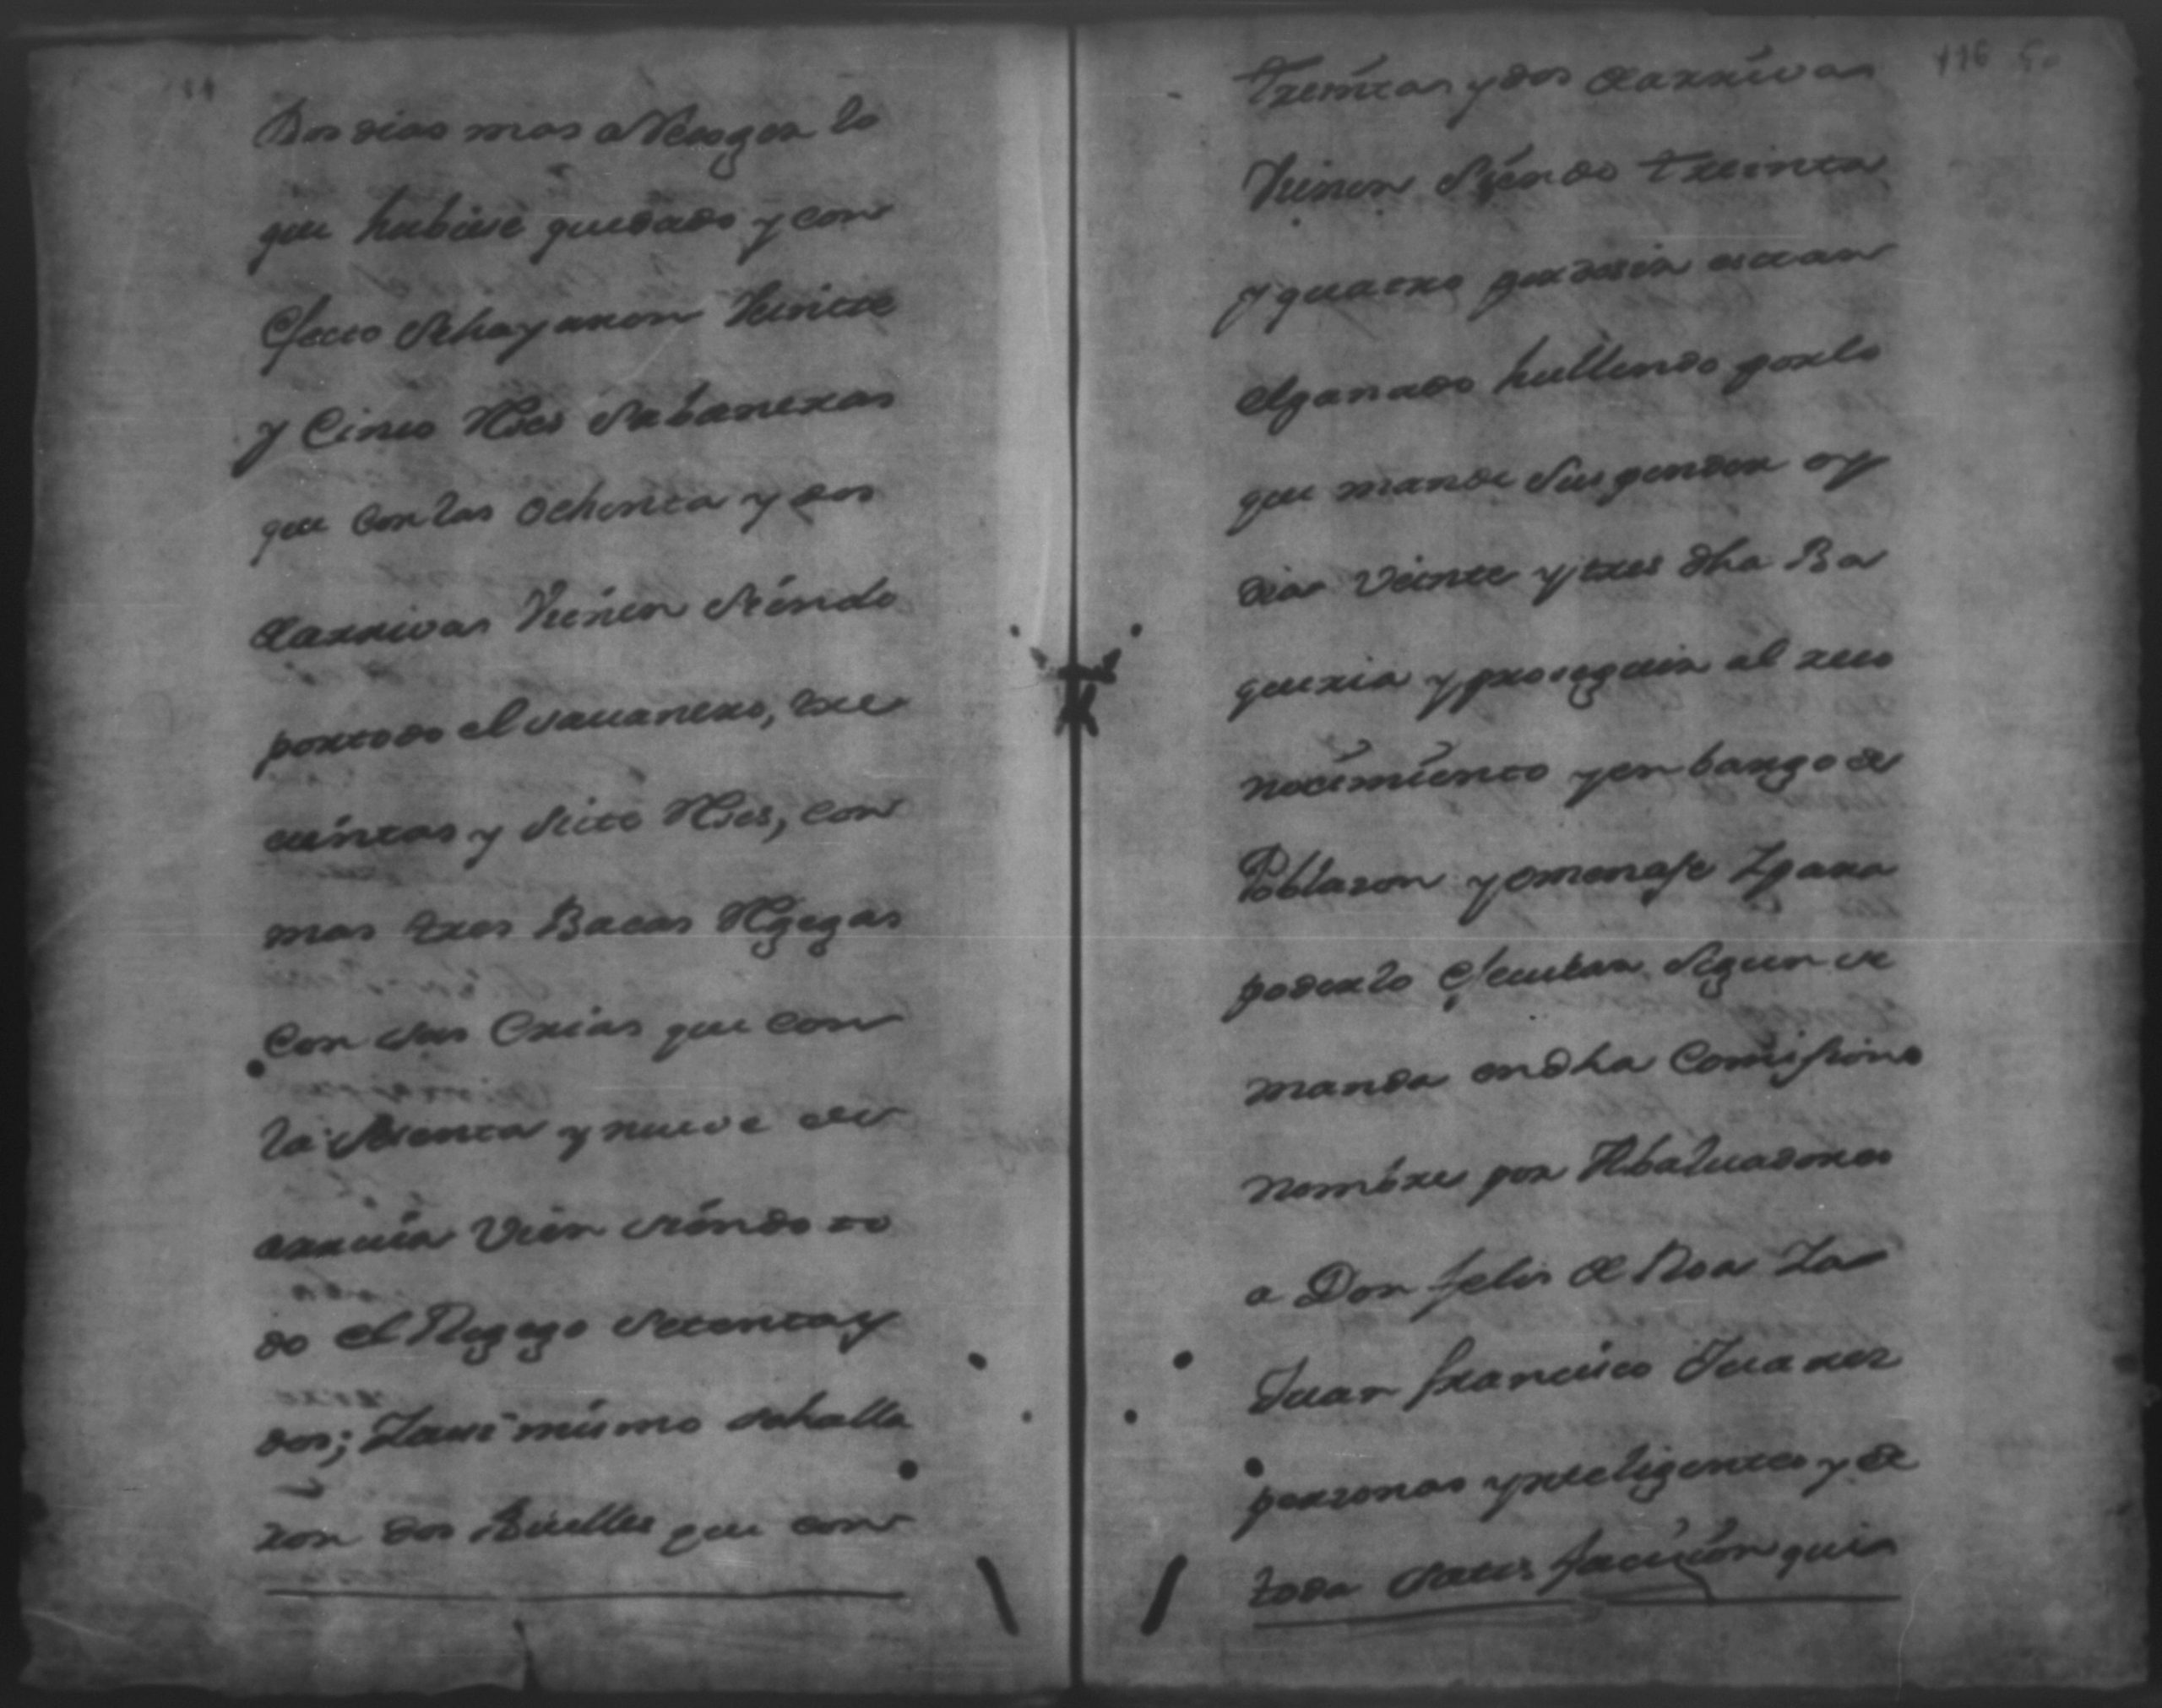 Dos dias mas a Recoger lo
que hubiese quedado y con
efecto se hayaron Veinte
y Cinco Rses Sabaneras
que con las ochenta y dos
de arrivas Vienen siendo
por todo el savanero, tre
cientas y siete Rses, con
mas tres Bacas Rejegas
con sus Crias que con
la sesenta y nueve de
arriva Vien siendo to
do el Rejego setenta y
dos; Y asi mismo se halla
ron dos Buelles que con
116
treintas y dos de arrivas
Vienen siendo treinta
y quatro por desir estan
el ganado hullendo por lo
que mande suspender oy
dia veinte y tres dha Ba
queria y proseguir al reco
nocimiento y enbargo de
Poblazon y omenaje Y para
poderlo ejecutar segun se
manda en dha Comission
nombre por Abaluadores
a Don felis de Roa Y a
Juan francisco Juares
personas ynteligentes y de
toda satisfacción quie